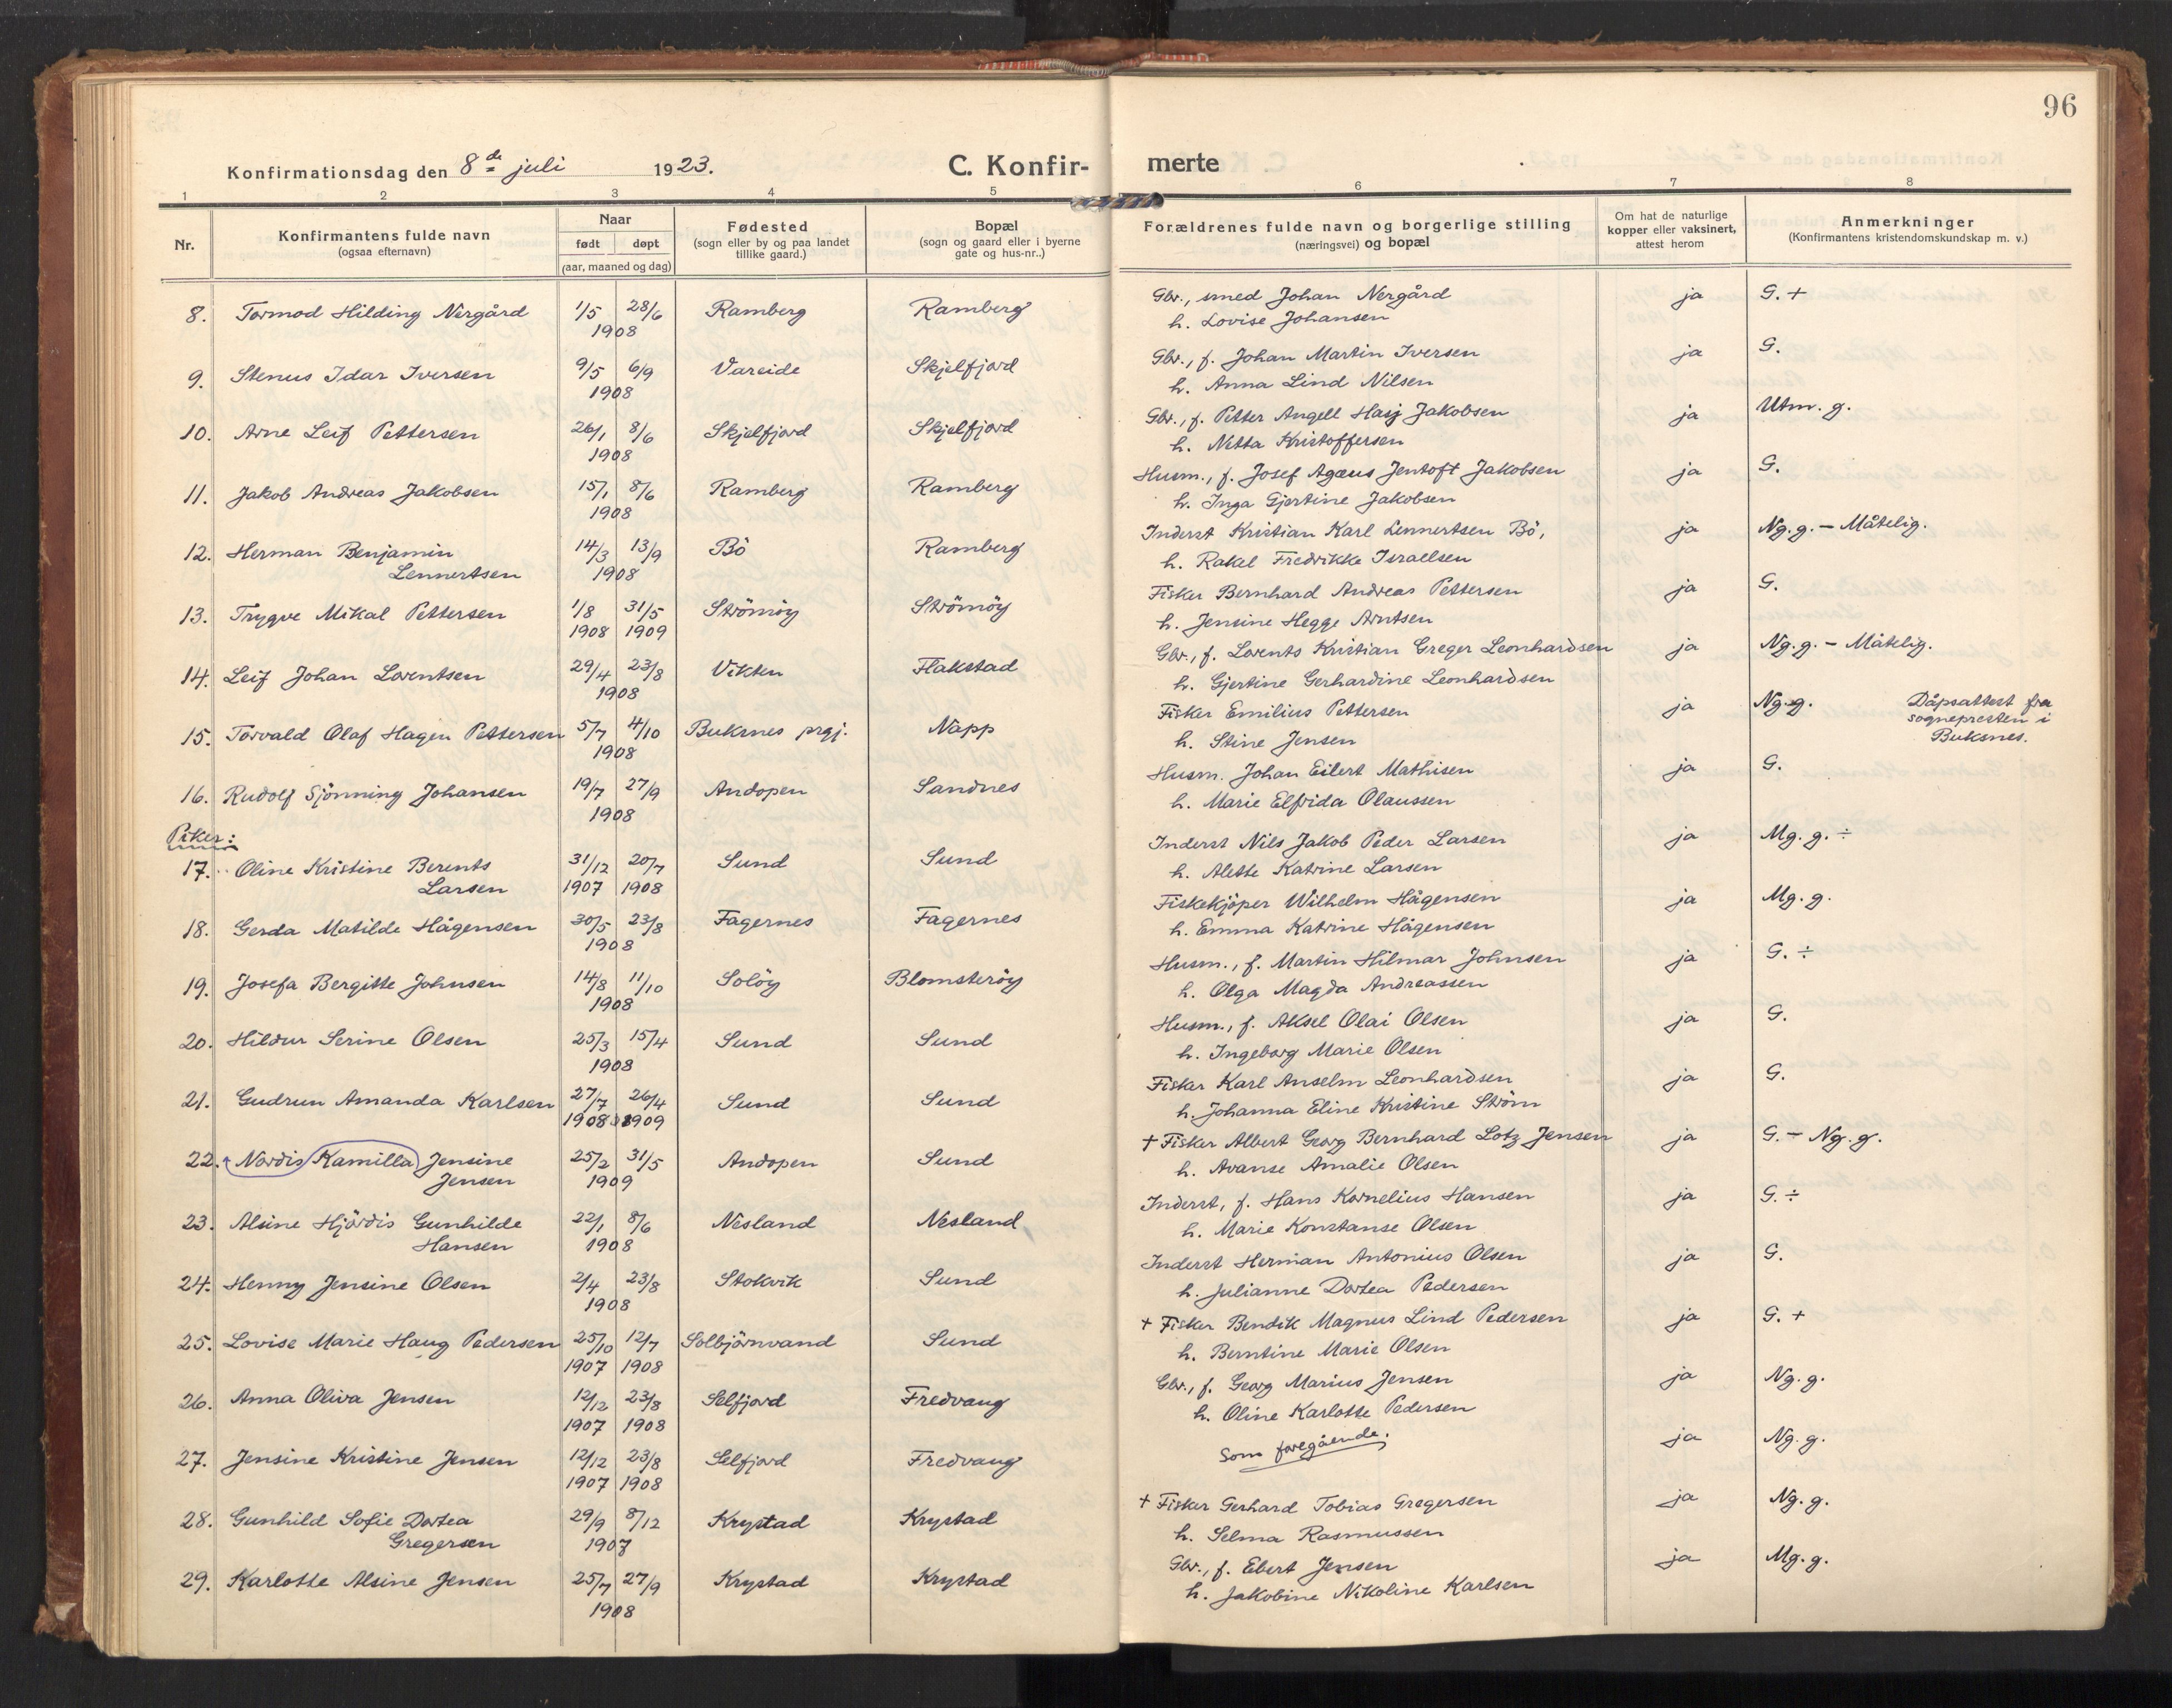 96
Konfirmationsdag den 8de juli 1923. C. Konfirmerte
1 2 3 4 5 6 7 8
Nr.
Konfirmantens fulde navn
(ogsaa efternavn)
Naar
født døpt
(aar, maaned og dag)
Fødested
(sogn eller by og paa landet
tillike gaard.)
Bopæl
(sogn og gaard eller i byerne
gate og hus-nr..)
Forældrenes fulde navn og borgerlige stilling
(næringsvei) og bopæl
Om hat de naturlige
kopper eller vaksinert,
attest herom
Anmerkninger
(Konfirmantens kristendomskundskap m. v.)
8. Tormod Hilding Nergård 1/5 28/6 Ramberg Ramberg Gbr., smed Johan Nergård ja G. +
1908 h. Lovise Johansen
9. Stenus Idar Iversen 9/5 6/9 Vareide Skjelfjord Gbr., f. Johan Martin Iversen ja G.
1908 h. Anna Lind Nilsen
10. Arne Leif Pettersen 26/1 8/6 Skjelfjord Skjelfjord Gbr., f. Petter Angell Hasj Jakobsen ja Utm. g.
1908 h. Netta Kristoffersen
11. Jakob Andreas Jakobsen 15/1 8/6 Ramberg Ramberg Husm., f. Josef Agæus Jentoft Jakobsen ja G.
1908 h. Inga Gjertine Jakobsen
12. Herman Benjamin 14/3 13/9 Bö Ramberg Inderst Kristian Karl Lennertsen Bö, ja Ng. g. – Måtelig.
Lennertsen 1908 h. Rakel Fredrikke Israelsen
13. Trygve Mikal Pettersen 1/8 31/5 Strömöy Strömöy Fisker Bernhard Andreas Pettersen ja G.
1908 1909 h. Jensine Hegge Arntsen
14. Leif Johan Lorentsen 29/4 23/8 Vikten Flakstad Gbr., f. Lorents Kristian Greger Leonhardsen ja Ng. g. – Måtelig.
1908 h. Gjertine Gerhardine Leonhardsen
15. Torvald Olaf Hagen Pettersen 5/7 4/10 Buksnes prgj. Napp Fisker Emilius Pettersen ja Ng. g. Dåpsattest fra
sognepresten i
Buksnes.
1908 h. Stine Jensen
16. Rudolf Sjönning Johansen 19/7 27/9 Andopen Sandnes Husm. Johan Eilert Mathisen ja G.
1908 h. Marie Elfrida Olaussen
Piker:
17. Oline Kristine Berents 31/12 20/7 Sund Sund Inderst Nils Jakob Peder Larsen ja Mg. g. ÷
Larsen 1907 1908 h. Alette Katrine Larsen
18. Gerda Matilde Hågensen 30/5 23/8 Fagernes Fagernes Fiskekjöper Wilhelm Hågensen ja Mg. g.
1908 h. Emma Katrine Hågensen
19. Josefa Bergitte Johnsen 14/8 11/10 Solöy Blomsteröy Husm., f. Martin Hilmar Johnsen ja G. ÷
1908 h. Olga Magda Andreassen
20. Hildur Serine Olsen 25/3 15/4 Sund Sund Husm., f. Aksel Olai Olsen ja G.
1908 h. Ingeborg Marie Olsen
21. Gudrun Amanda Karlsen 27/7 26/4 Sund Sund Fisker Karl Anselm Leonhardsen ja G.
1908 1909 h. Johanna Eline Kristine Ström
22. Nordis Kamilla Jensine 25/2 31/5 Andopen Sund + Fisker Albert Georg Bernhard Lotz Jensen ja G. – Ng. g.
Jensen 1909 h. Avanse Amalie Olsen
23. Alsine Hjördis Gunhilde 22/1 8/6 Nesland Nesland Inderst, f. Hans Kornelius Hansen ja G. ÷
Hansen 1908 h. Marie Konstanse Olsen
24. Henny Jensine Olsen 2/4 23/8 Stokvik Sund Inderst Herman Antonius Olsen ja G.
1908 h. Julianne Dortea Pedersen
25. Lovise Marie Haug Pedersen 25/10 12/7 Solbjörnvand Sund + Fisker Bendik Magnus Lind Pedersen ja G. +
1907 1908 h. Berntine Marie Olsen
26. Anna Oliva Jensen 12/12 23/8 Selfjord Fredvang Gbr., f. Georg Marius Jensen ja Ng. g.
1907 1908 h. Oline Karlotte Pedersen
27. Jensine Kristine Jensen 12/12 23/8 Selfjord Fredvang Som foregående. ja Ng. g.
1907 1908
28. Gunhild Sofie Dortea 29/9 8/12 Krystad Krystad + Fisker Gerhard Tobias Gregersen ja Ng. g.
Gregersen 1907 h. Selma Rasmussen
29. Karlotte Alsine Jensen 25/7 27/9 Krystad Krystad Gbr., f. Ebert Jensen ja Mg. g.
1908 h. Jakobine Nikoline Karlsen